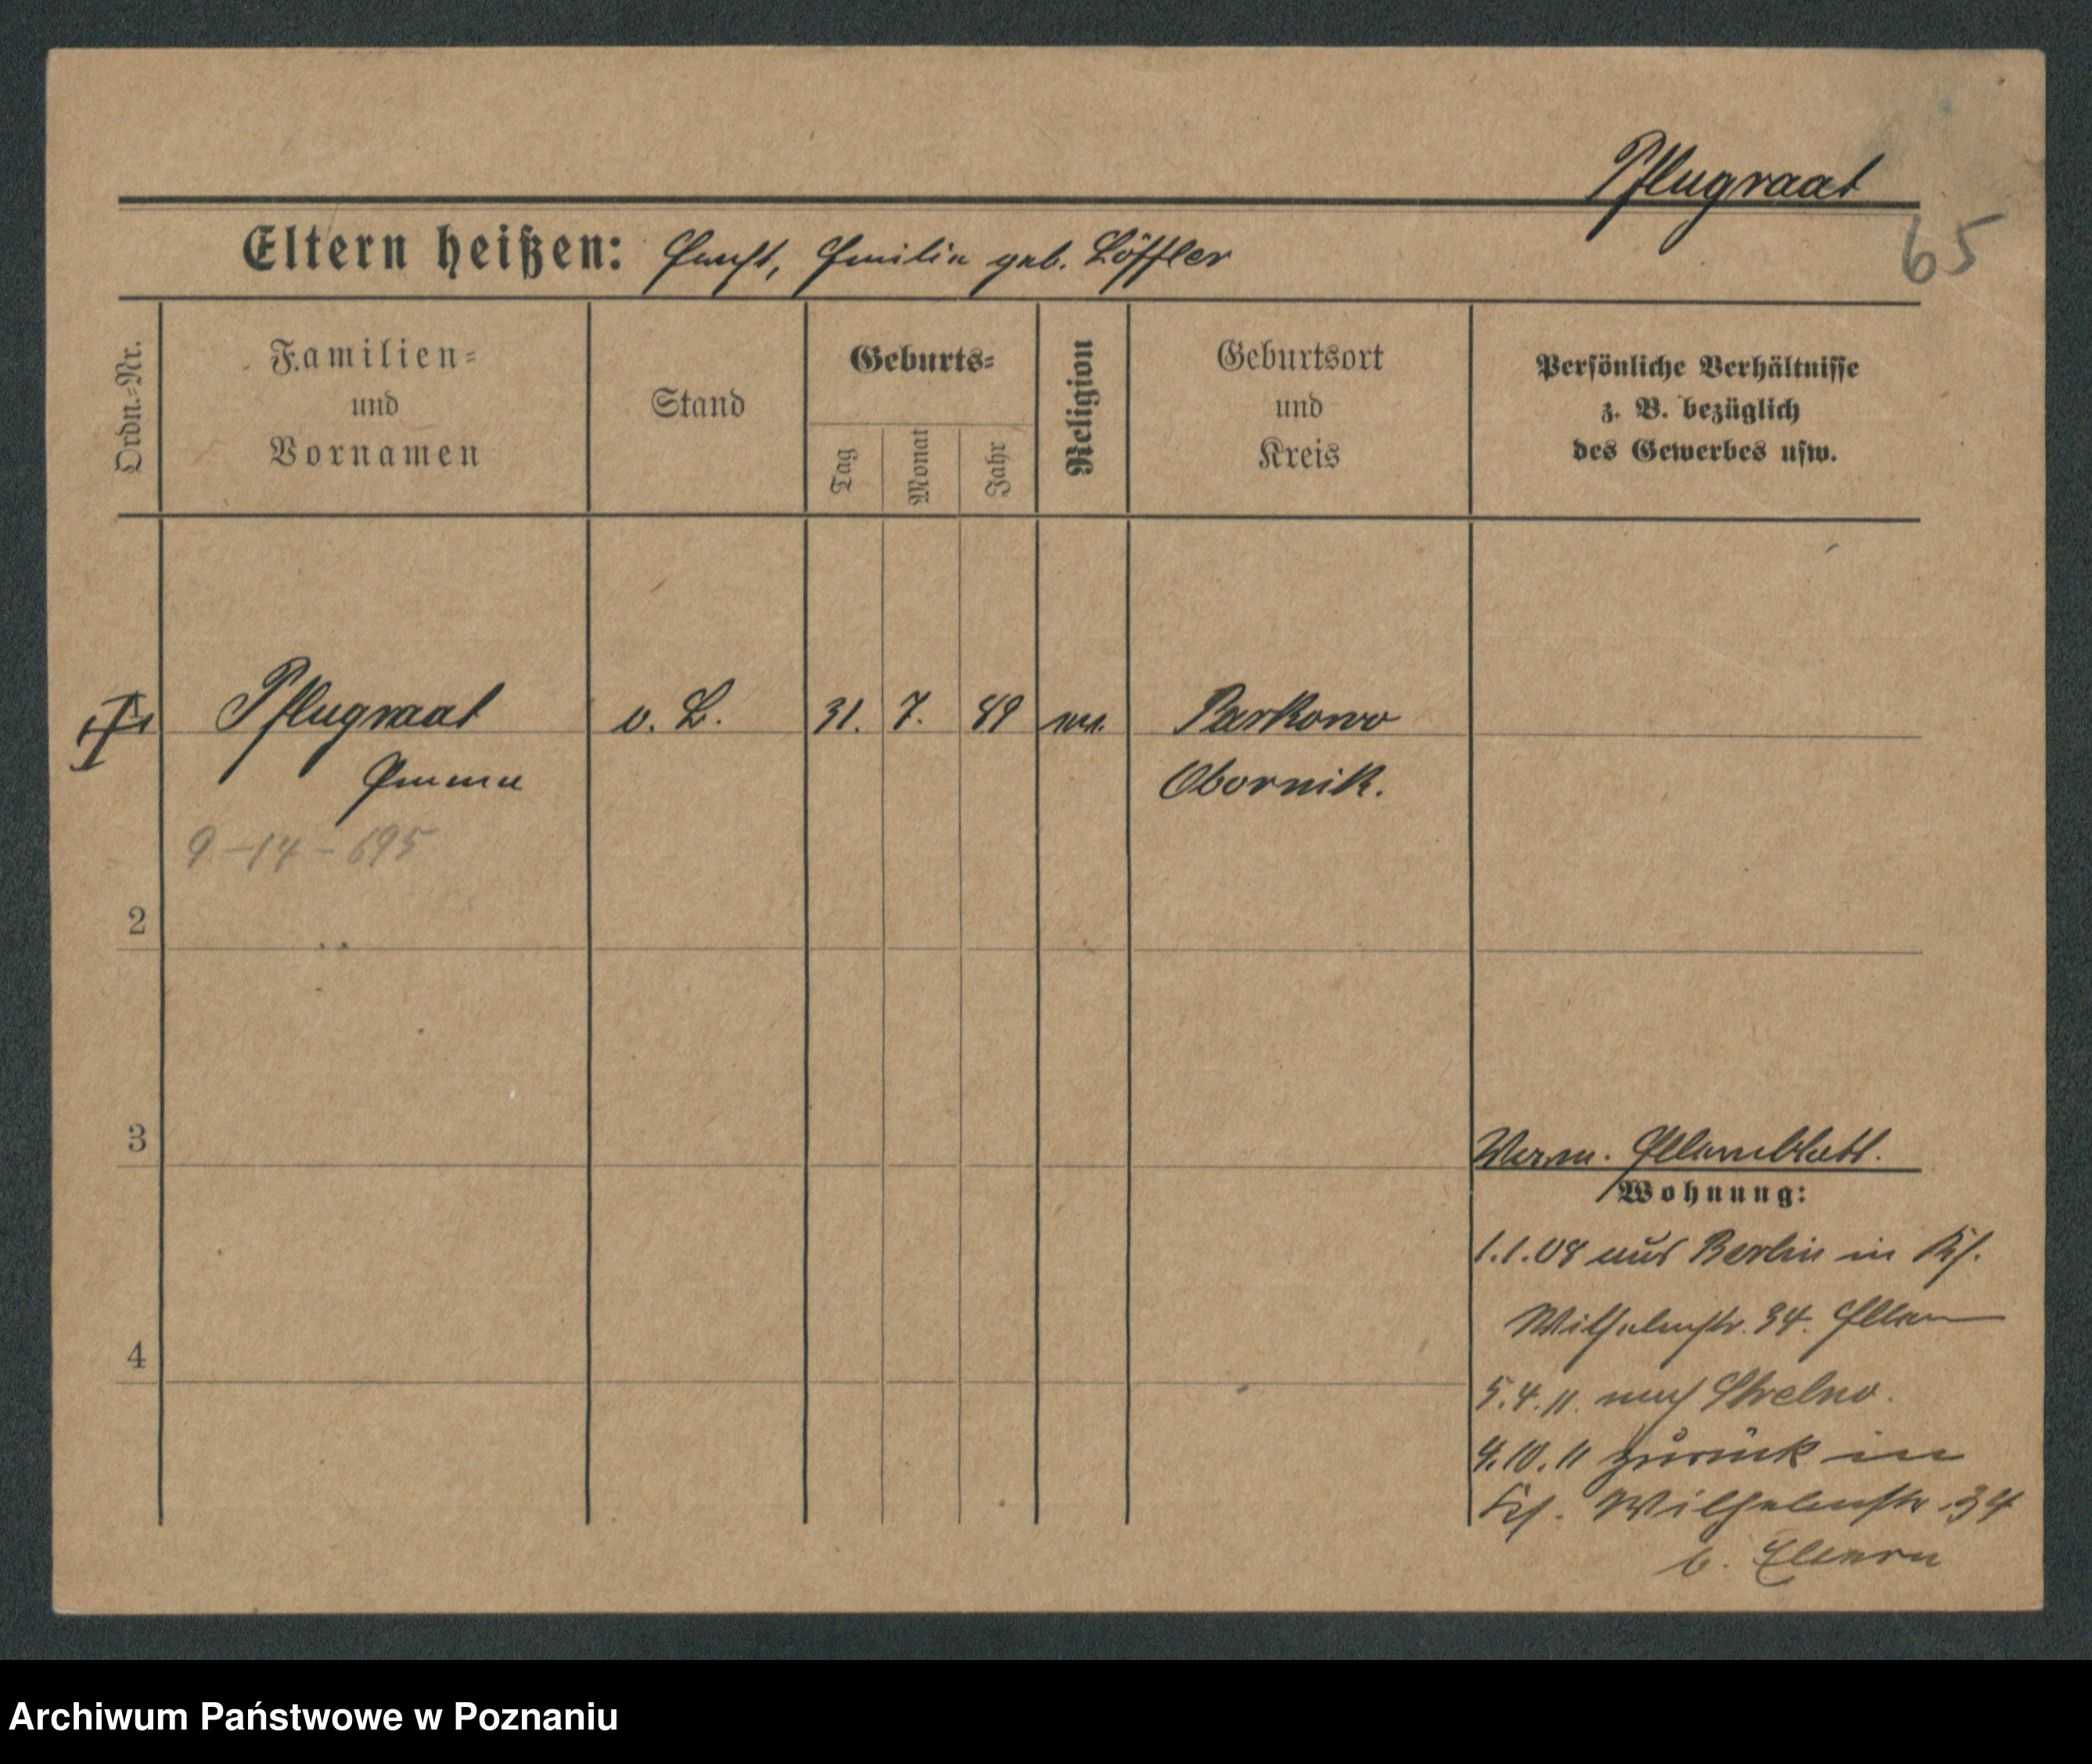 Pflugraat
65
Eltern heißen: Ernst, Emilie geb. Löffler
Ordn.-Nr.
Familien-
und
Vornamen
Stand
Geburts-
Tag
Monat
Jahr
Religion
Geburtsort
und
Kreis
Persönliche Verhältnisse
z. B. bezüglich
des Gewerbes usw.
1 Pflugraat o. B. 31. 7. 89 ev. Parkowo
Emma Obornik.
9-14-695
2
3
Verm. Elternblatt.
Wohnung:
1.1.08 aus Berlin in
Wilhelmstr. 34. Eltern
4
5.4.11. nach Strelno.
4.10.11 zurück in
Wilhelmstr. 34
b. Eltern
Archiwum Państwowe w Poznaniu